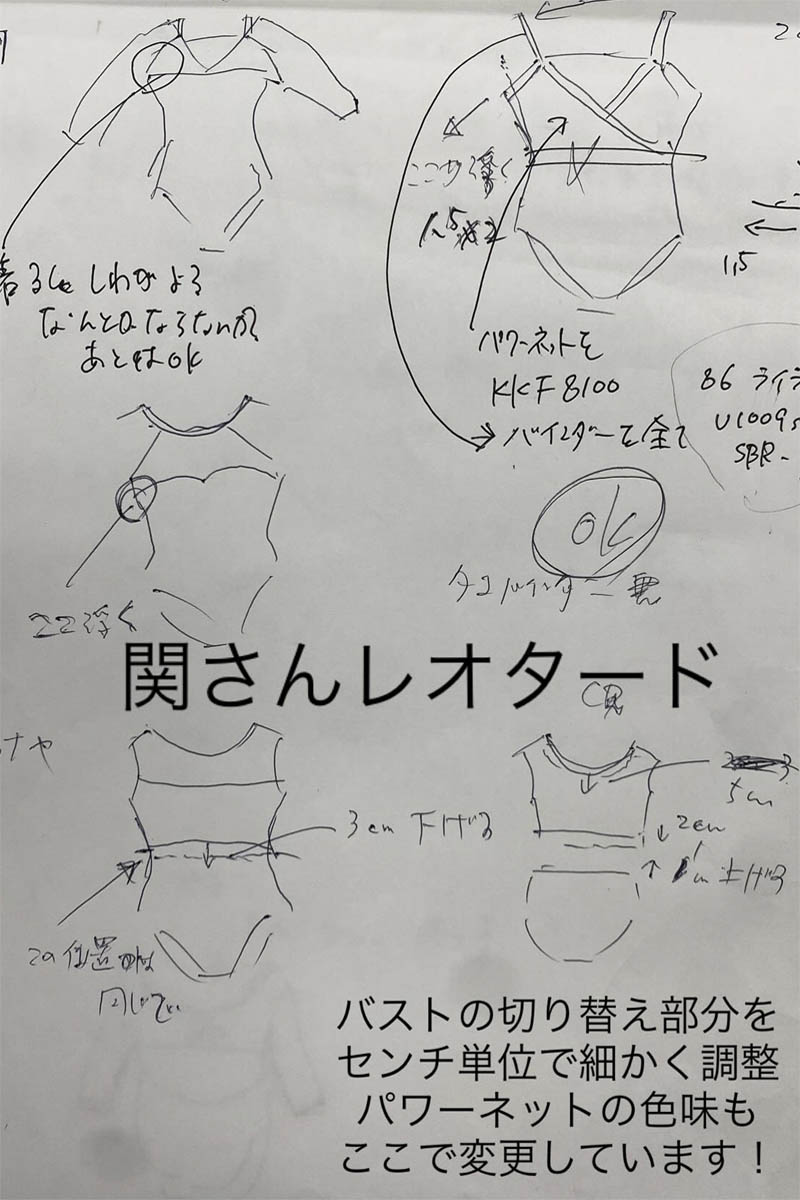 着るとしわがよる
なんとかならないか
あとはOK
ここが浮く
1.5
パワーネットを
KKF8100
バインダーを全て
86 ライ
U1009
SBR-
OK
ここ浮く
関さんレオタード
3cm 下げる
5cm
2cm
1cm 上げる
この位置は
同じで
バストの切り替え部分を
センチ単位で細かく調整
パワーネットの色味も
ここで変更しています！